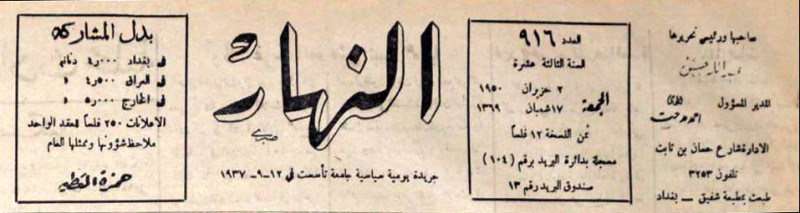 صاحبها ورئيس تحريرها
المدير المسؤول
الادارة شارع حسان بن ثابت
تلفون ٣٢٥٣
طبعت بمطبعة شفيق - بغداد
العدد ٩١٦
السنة الثالثة عشرة
الجمعة
٢ حزيران ١٩٥٠
١٧ شعبان ١٣٦٩
ثمن النسخة ١٢ فلسا
مسجلة بدائرة البريد برقم (١٠٤)
صندوق البريد رقم ١٣
النهار
صبري
جريدة يومية سياسية جامعة تأسست في ١٢-٩-١٩٣٧
بدل المشاركة
في بغداد ٤٫٠٠٠ دنانير
في العراق ٤٫٥٠٠ »
في الخارج ٥٫٠٠٠ »
الاعلانات ٢٥٠ فلسا للعقد الواحد
ملاحظ شؤونها وممثلها العام
حمزة